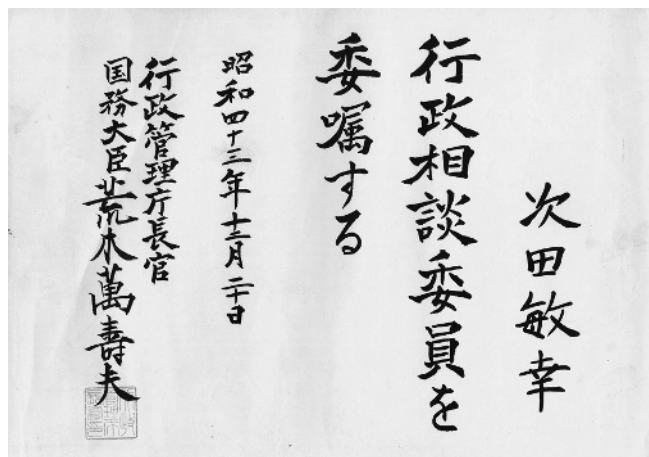 次田敏幸
行政相談委員を
委嘱する
昭和四十三年十二月二十日
行政管理庁長官
国務大臣荒木萬壽夫